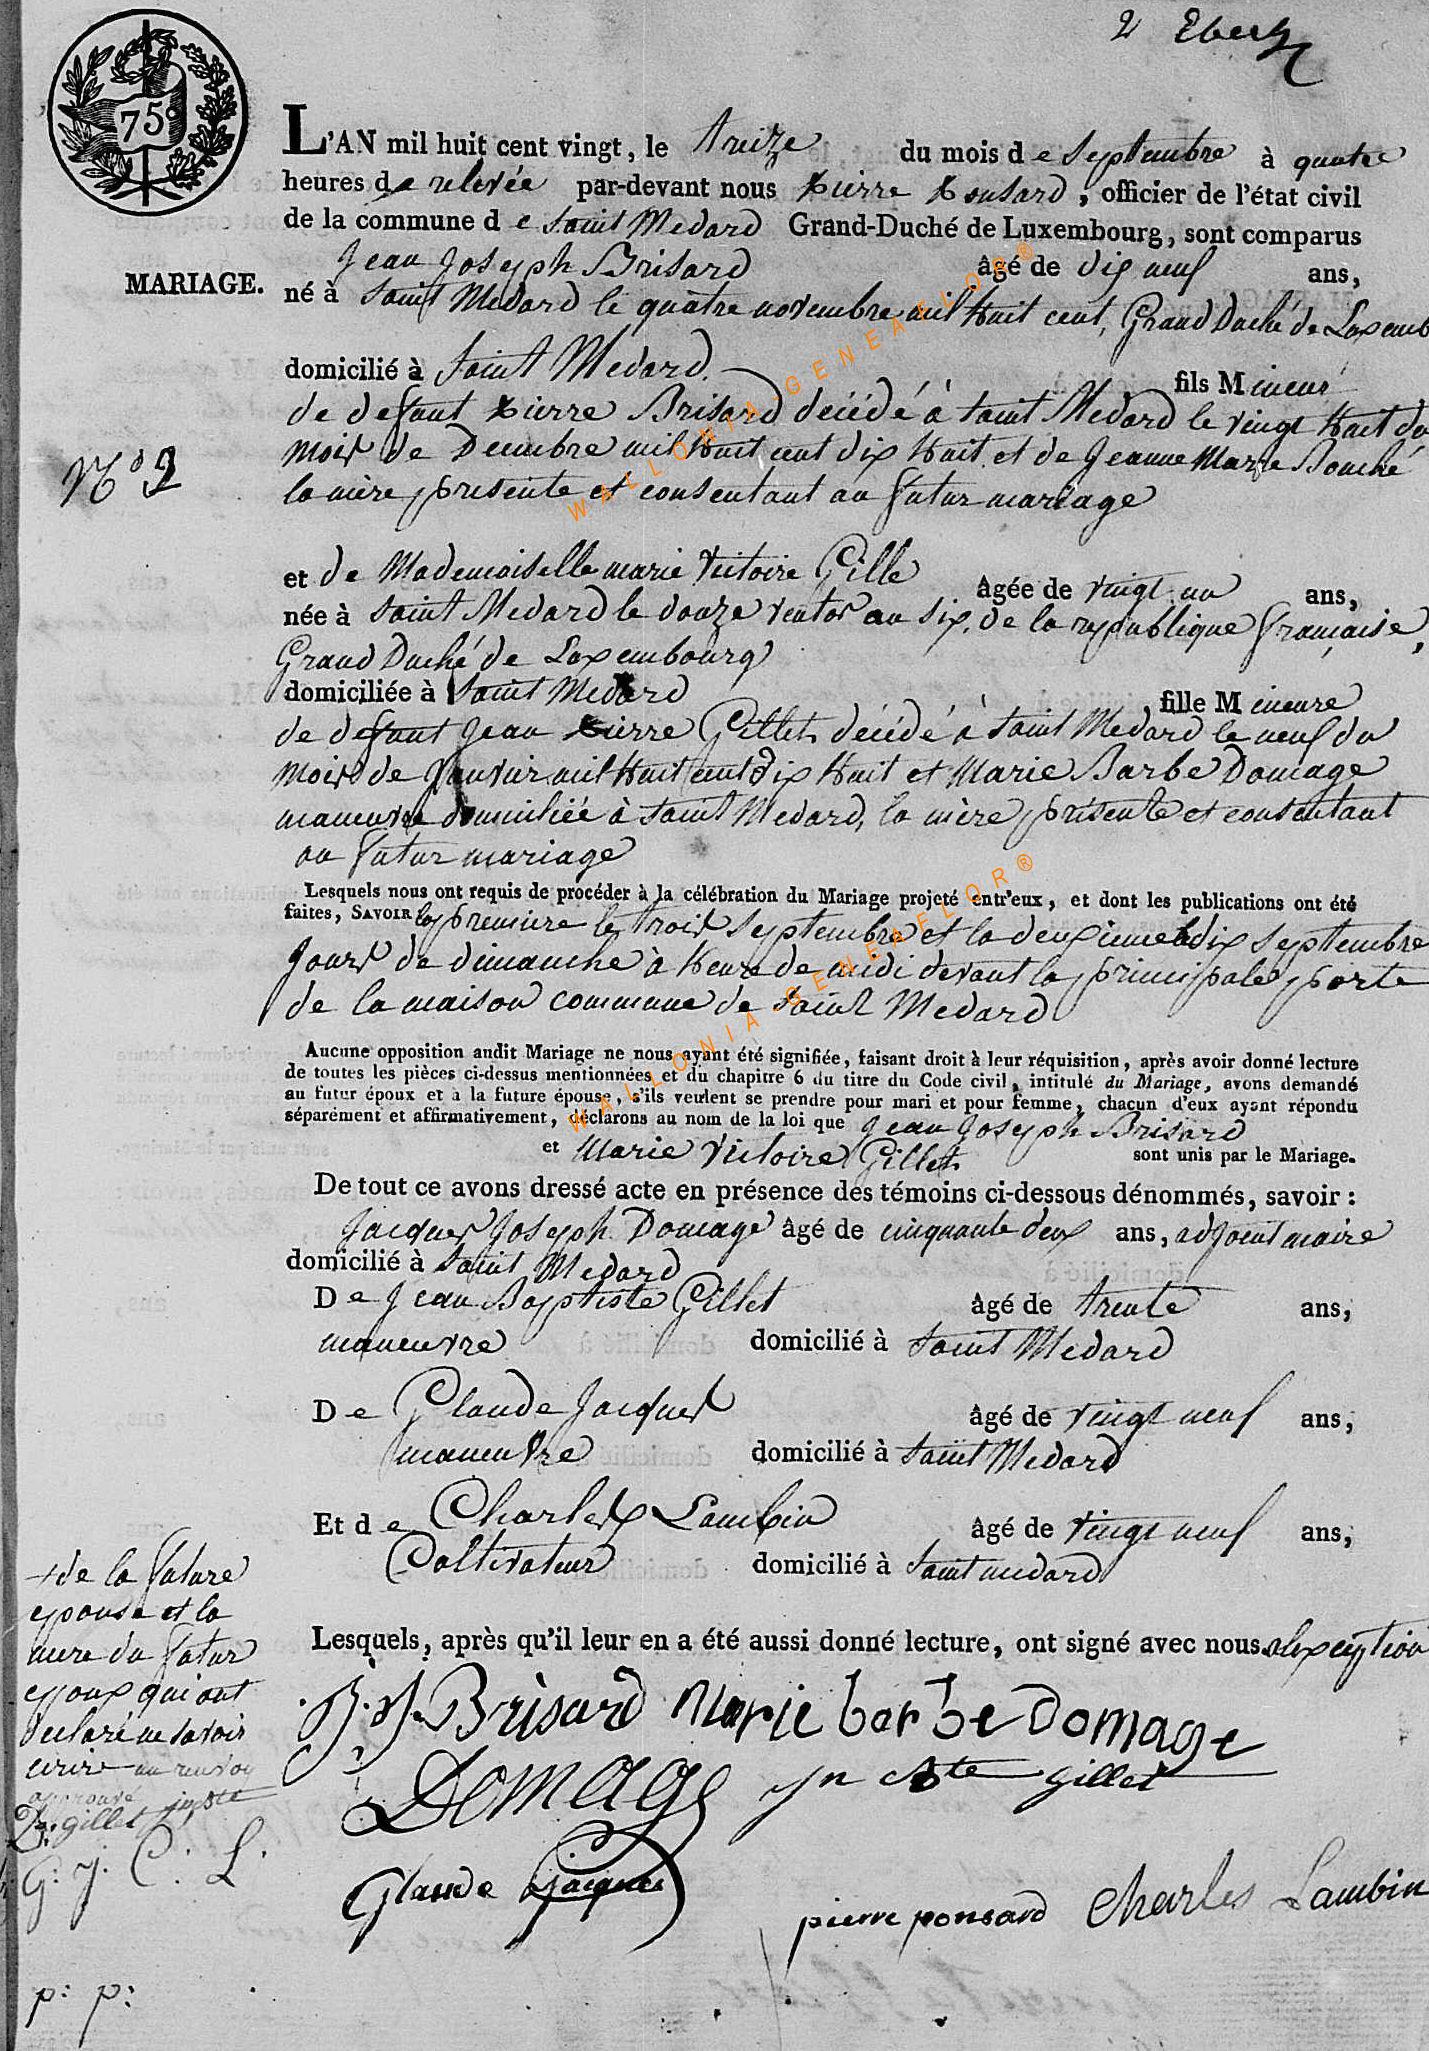 2 Ebertz
75c
L'AN mil huit cent vingt, le treize du mois de septembre à quatre
heures de relevée par-devant nous pierre ponsard, officier de l'état civil
de la commune de saint Medard Grand-Duché de Luxembourg, sont comparus
Jean Joseph Brisard âgé de dix neuf ans,
MARIAGE.
né à saint Medard le quatre novembre mil huit cent, Grand Duché de Luxemb
domicilié à saint Medard. fils Mineur
de defunt pierre Brisard décédé à saint Medard le vingt huit du
N° 2
mois de Decembre mil huit cent dix huit et de Jeanne Marie Bouché
la mère presente et consentant au futur mariage
et de Mademoiselle marie Victoire Gille âgée de vingt un ans,
née à saint Medard le douze ventos an six, de la republique française,
Grand Duché de Luxembourg
domiciliée à saint Medard fille Mineure
de defunt Jean pierre Gillet décédé à saint Medard le neuf du
mois de Janvier mil huit cent dix huit et Marie Barbe Domage
maneuvre domiciliée à saint Medard, la mère presente et consentant
au futur mariage
Lesquels nous ont requis de procéder à la célébration du Mariage projeté entr'eux, et dont les publications ont été
faites, SAVOIR la premiere le trois septembre et la deuxieme le dix septembre
Jours de dimanche à heure de midi devant la principale porte
de la maison commune de saint Medard
Aucune opposition audit Mariage ne nous ayant été signifiée, faisant droit à leur réquisition, après avoir donné lecture
de toutes les pièces ci-dessus mentionnées et du chapitre 6 du titre du Code civil, intitulé du Mariage, avons demandé
au futur époux et à la future épouse, s'ils veulent se prendre pour mari et pour femme, chacun d'eux ayant répondu
séparément et affirmativement, déclarons au nom de la loi que Jean Joseph Brisard
et Marie Victoire Gillet sont unis par le Mariage.
De tout ce avons dressé acte en présence des témoins ci-dessous dénommés, savoir :
Jacques Joseph Domage âgé de cinquante deux ans, adjoint maire
domicilié à saint Medard
De Jean Baptiste Gillet âgé de trente ans,
maneuvre domicilié à saint Medard
De Glaude Jacques âgé de vingt neuf ans,
maneuvre domicilié à saint Medard
Et de Charles Lambin âgé de vingt neuf ans,
Coltivateur domicilié à saint medard
Lesquels, après qu'il leur en a été aussi donné lecture, ont signé avec nous alexception
+ de la future
epouse et la
mere du futur
epoux qui ont
declaré ne savoir
ecrire un renvoy
approuvé
D: gillet jn bte
G: J. C. L.
p: p:
J. J. Brisard Marie barbe Domage
Domage jn bte gillet
Glaude Jacques
pierre ponsard Charles Lambin
WALLONIA-GENEAFLOR®
WALLONIA-GENEAFLOR®